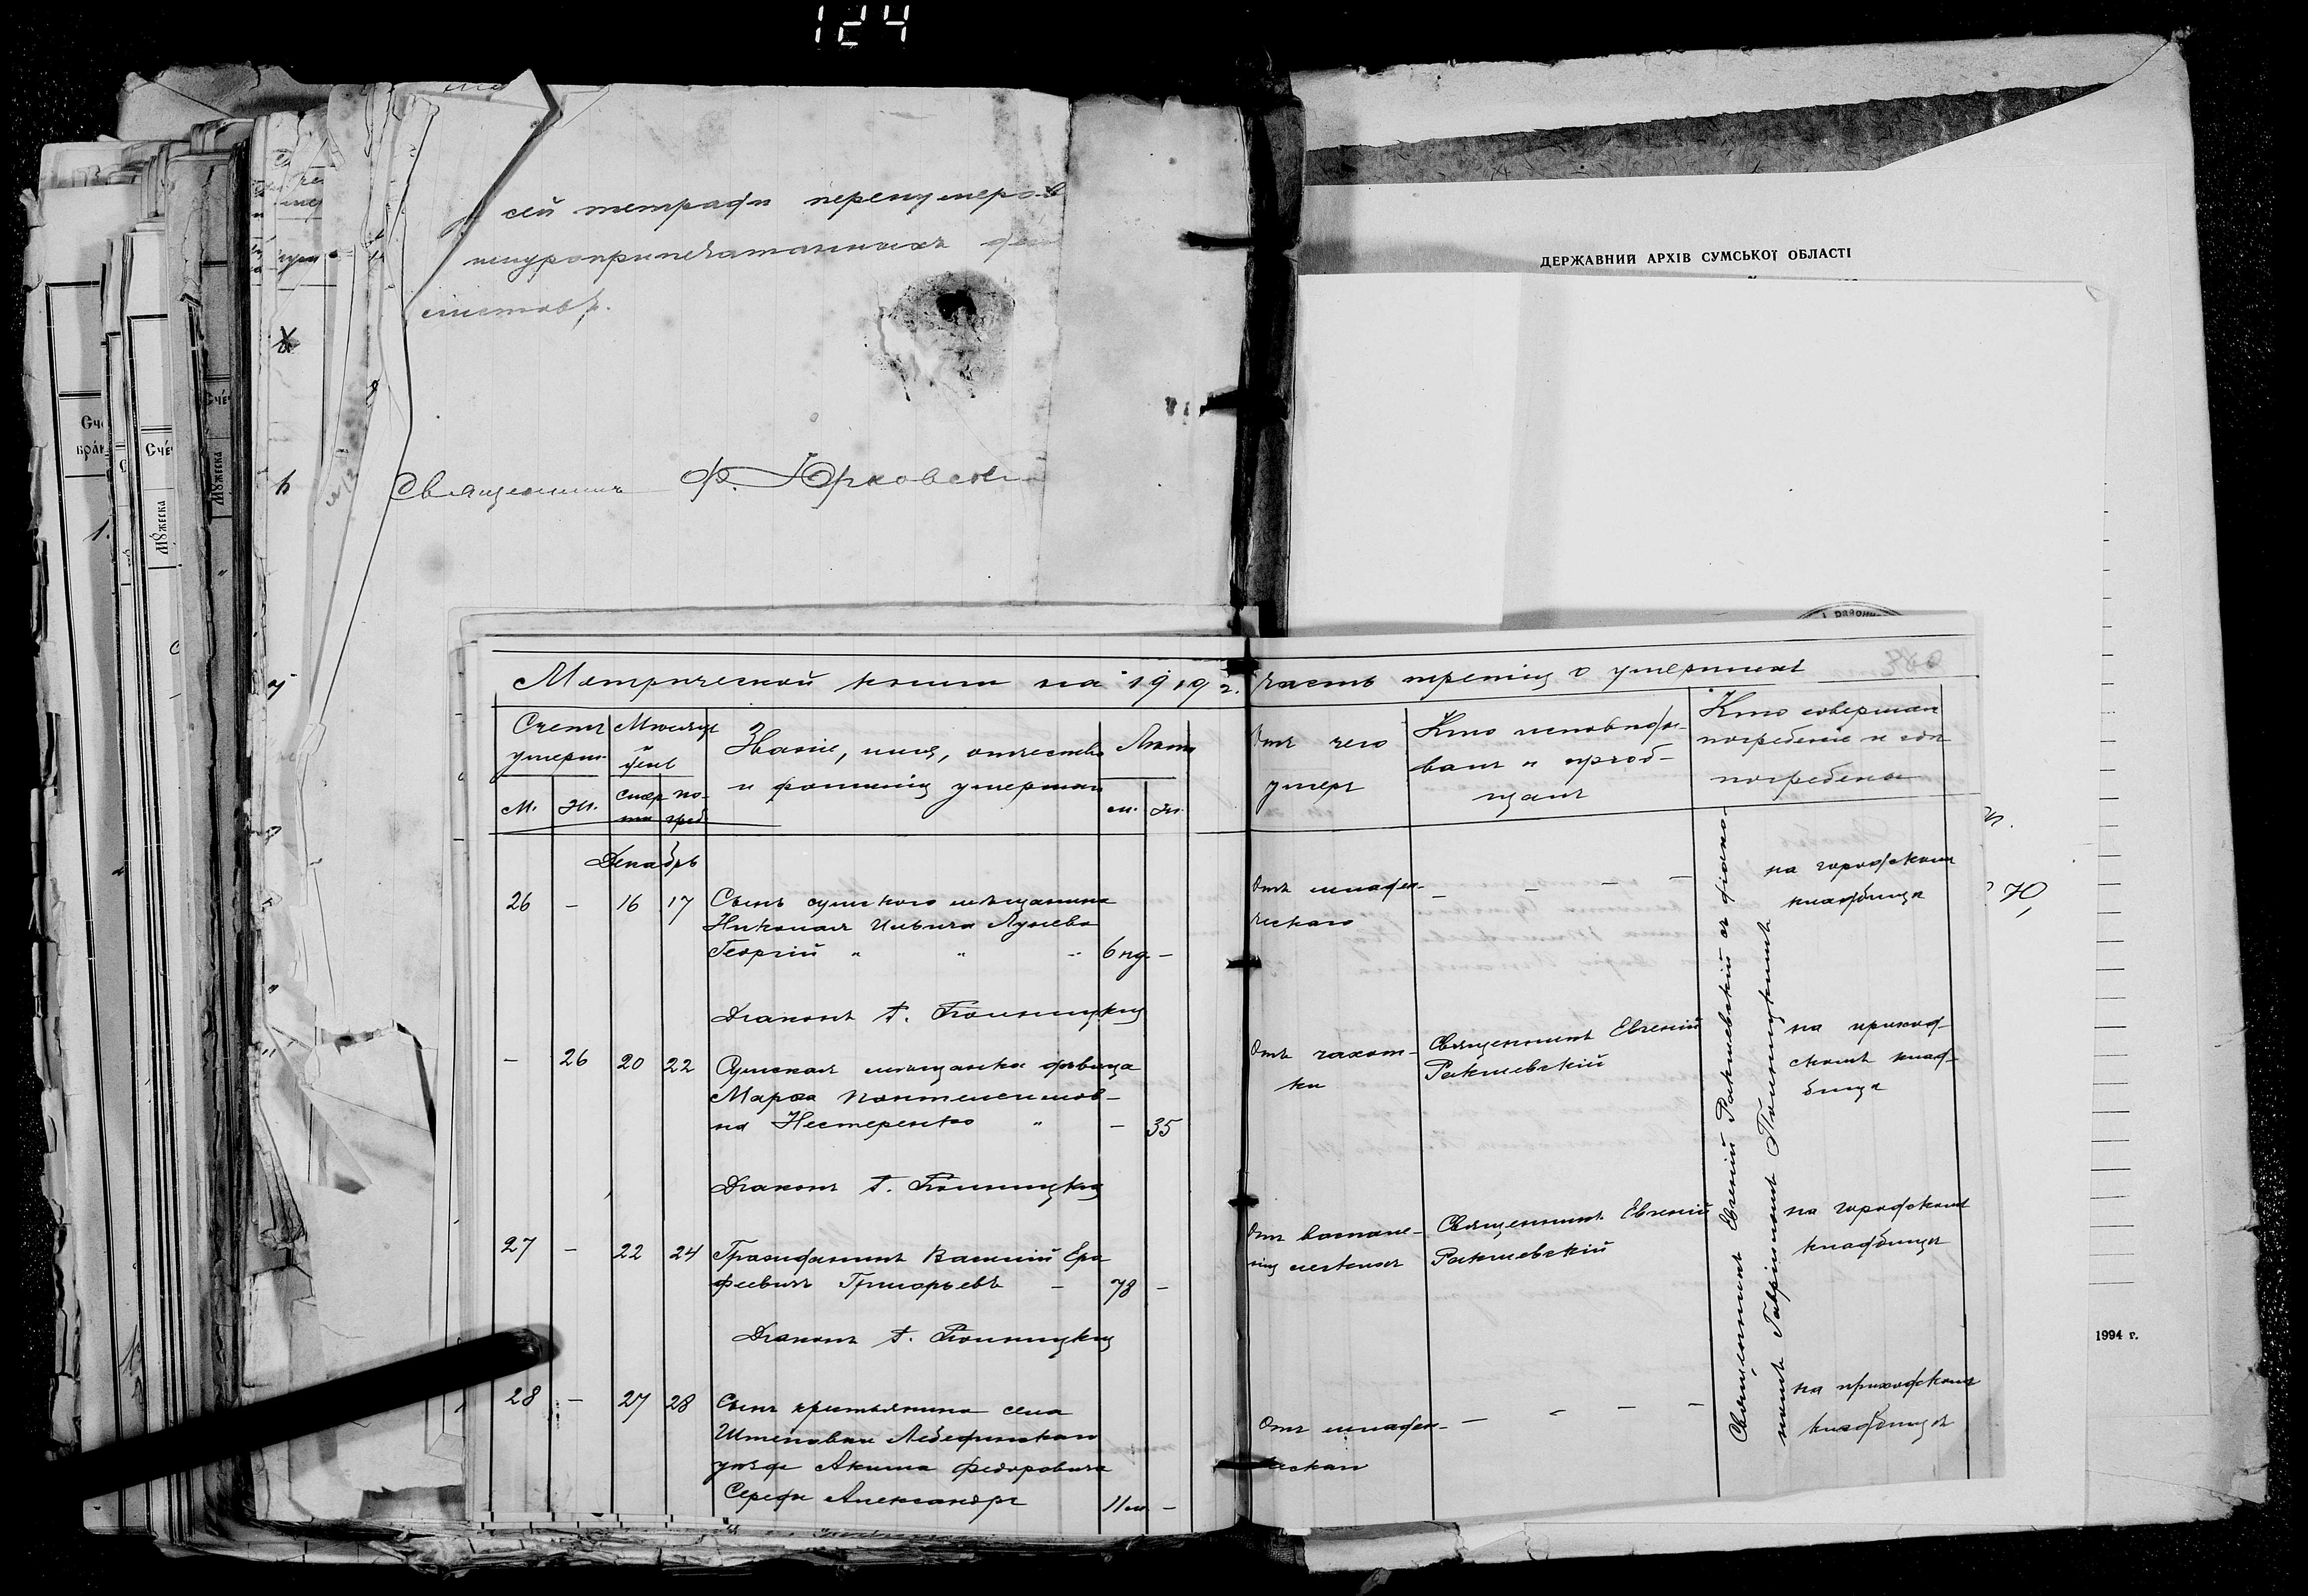 124
сей тетради перенумеров
шнуроприпечатанныхъ
листовъ.
Священникъ Ф. Юрковскі
ДЕРЖАВНИЙ АРХІВ СУМСЬКОЇ ОБЛАСТІ
Метрической книги на 1919 г. часть третія о умершихъ
Счетъ умерш.
М. Ж.
Мѣсяцъ и день
смерти погреб.
Званіе, имя, отчество
и фамилія умершаго
Лѣта
м. ж.
Отъ чего
умеръ
Кто исповѣды-
валъ и пріоб-
щалъ
Кто совершал
погребеніе и гдѣ
погребены
Декабрь
26 - 16 17 Сынъ сумского мѣщанина
Николая Ильича Лунева
Георгій " " " 6 нд. -
Отъ младен-
ческаго
- - - -
на городскомъ
кладбищѣ
Діаконъ Г. Полницкій
- 26 20 22 Сумская мѣщанка дѣвица
Марфа Пантелеимов-
на Нестеренко " - 35
Отъ чахот-
ки
Священникъ Евгеній
Ракшевскій
на приход-
скомъ клад-
бищѣ
Діаконъ Г. Полницкій
27 - 22 24 Гражданинъ Василій Ера
феевичъ Григорьевъ - 78 -
Отъ воспале-
нія легкихъ
Священникъ Евгеній
Ракшевскій
на городскомъ
кладбищѣ
Діаконъ Г. Полницкій
28 - 27 28 Сынъ крестьянина села
Штеповки Лебединскаго
уѣзда Акима Федоровича
Середы Александръ 11 м -
Отъ младен-
ческаго
- - - -
на приходскомъ
кладбищѣ
Священникъ Евгеній Ракшевскій съ діако-
номъ Гавріиломъ Полницкимъ
1994 г.